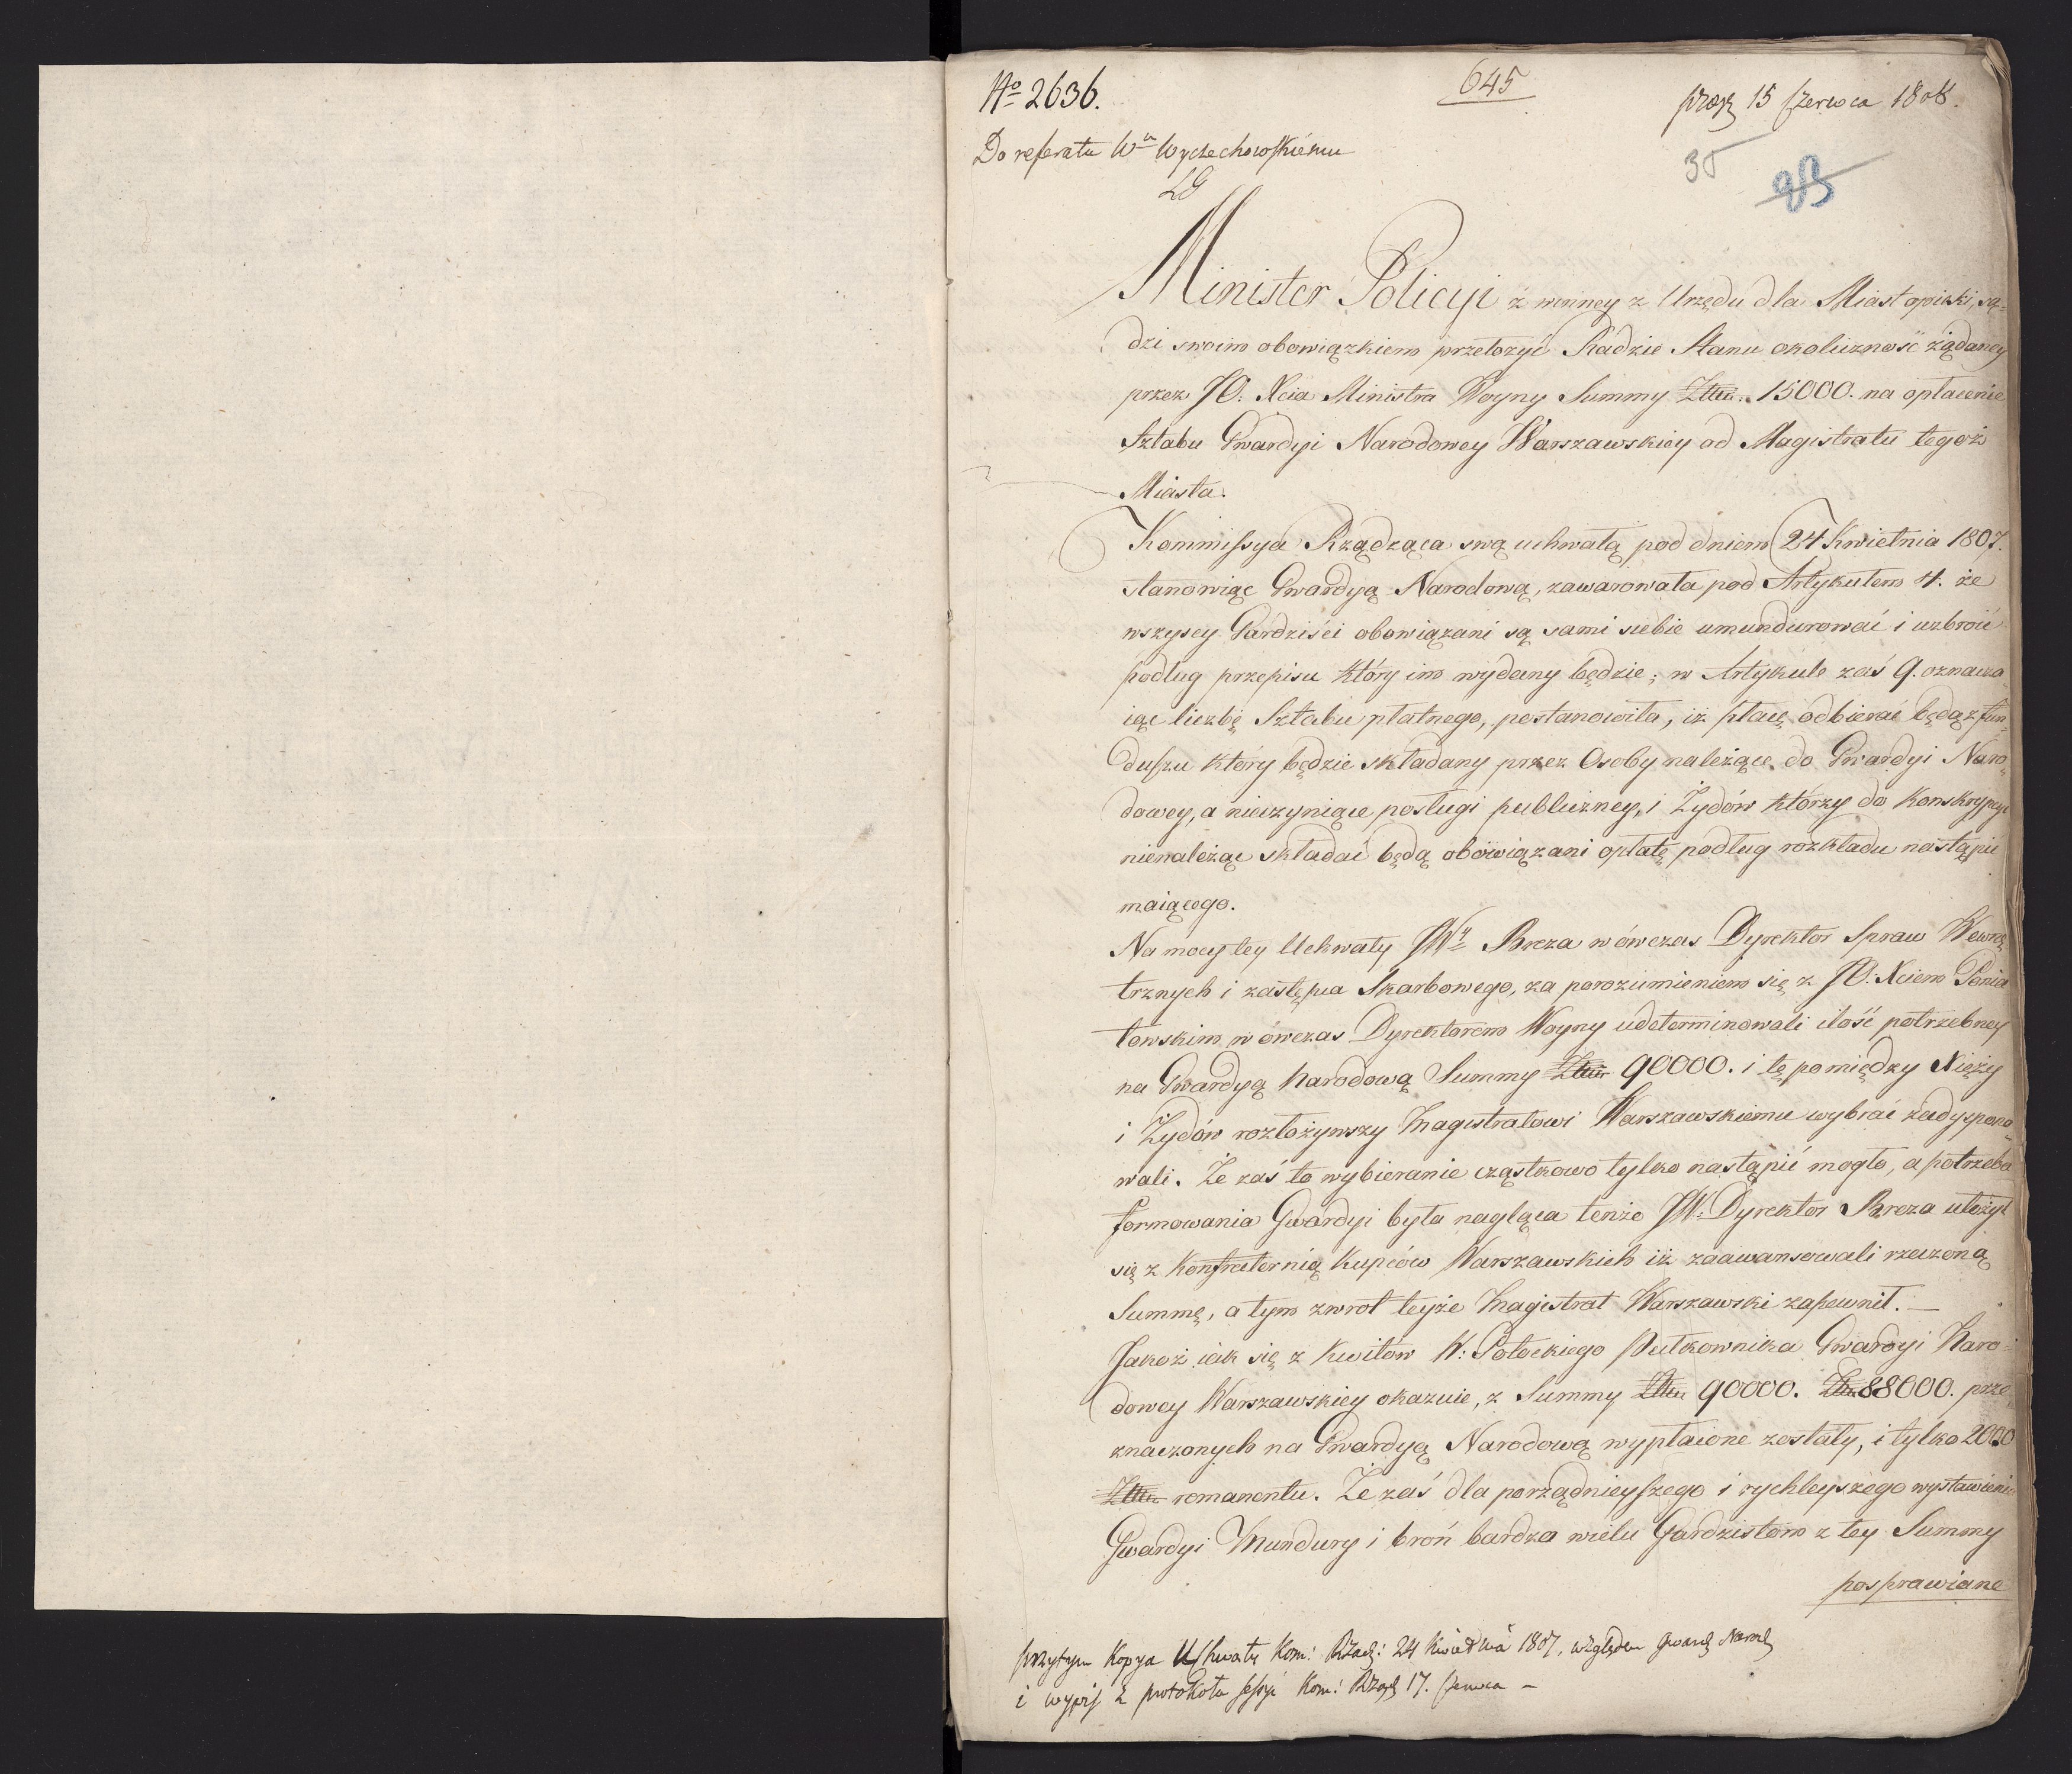 No 2636.
645
15 Czerwca 1808.
Do referatu Wu Wyczechowskiému
LG
35
93
Minister Policyi z winney z Urzędu dla Miast opieki, są-
dzi swoim obowiązkiem przełożyć Radzie Stanu okoliczność żądaney
przez JO: Xcia Ministra Woyny Summy Złtn: 15000. na opłacenie
Sztabu Gwardyi Narodowey Warszawskiey od Magistratu tegoż
Miasta.
Kommissya Rządząca swą uchwałą pod dniem 24 Kwietnia 1807.
stanowiąc Gwardyą Narodową, zawarowała pod Artykułem 4. że
wszyscy Gardziści obowiązani są sami siebie umundurować i uzbroić
podług przepisu który im wydany będzie; w Artykule zaś 9. oznacza-
iąc liczbę Sztabu płatnego, postanowiła, iż płacę odbierać będą z fun-
duszu który będzie składany przez Osoby należące do Gwardyi Naro-
dowey, a nieczyniące posługi publiczney, i Żydów którzy do Konskrypcyi
nienależąc składać będą obowiązani opłatę podług rozkładu nastąpić
maiącego.
Na mocy tey Uchwały JWy Breza wówczas Dyrektor Spraw Wewnę-
trznych i zastępca Skarbowego, za porozumieniem się z JO: Xciem Ponia-
towskim wówczas Dyrektorem Woyny udeterminowali ilość potrzebney
na Gwardyą Narodową Summy Złtn 90000. i tę pomiędzy Xięży
i Żydów rozłożywszy Magistratowi Warszawskiemu wybrać zadyspono-
wali. Że zaś to wybieranie cząstkowo tylko nastąpić mogło, a potrzeba
formowania Gwardyi była nagląca tenże JW: Dyrektor Breza ułożył
się z Konfraternią Kupców Warszawskich iż zaawansowali rzeczoną
Summę, a tym zwrot teyże Magistrat Warszawski zapewnił. —
Jakoż iak się z Kwitów W: Potockiego Pułkownika Gwardyi Naro-
dowey Warszawskiey okazuie, z Summy Złtn 90000. Złtn 88000. prze-
znaczonych na Gwardyą Narodową wypłacone zostały, i tylko 2000
Złtn remanentu. Że zaś dla porządnieyszego i rychleyszego wystawienia
Gwardyi Mundury i broń bardzo wielu Gardzistom z tey Summy
posprawiane
przytym Kopya Uchwały Kom: Rządz: 24 Kwietnia 1807. względem Gward Narod
i wypis z protokołu sessyi Kom: Rządz 17. Czerwca —